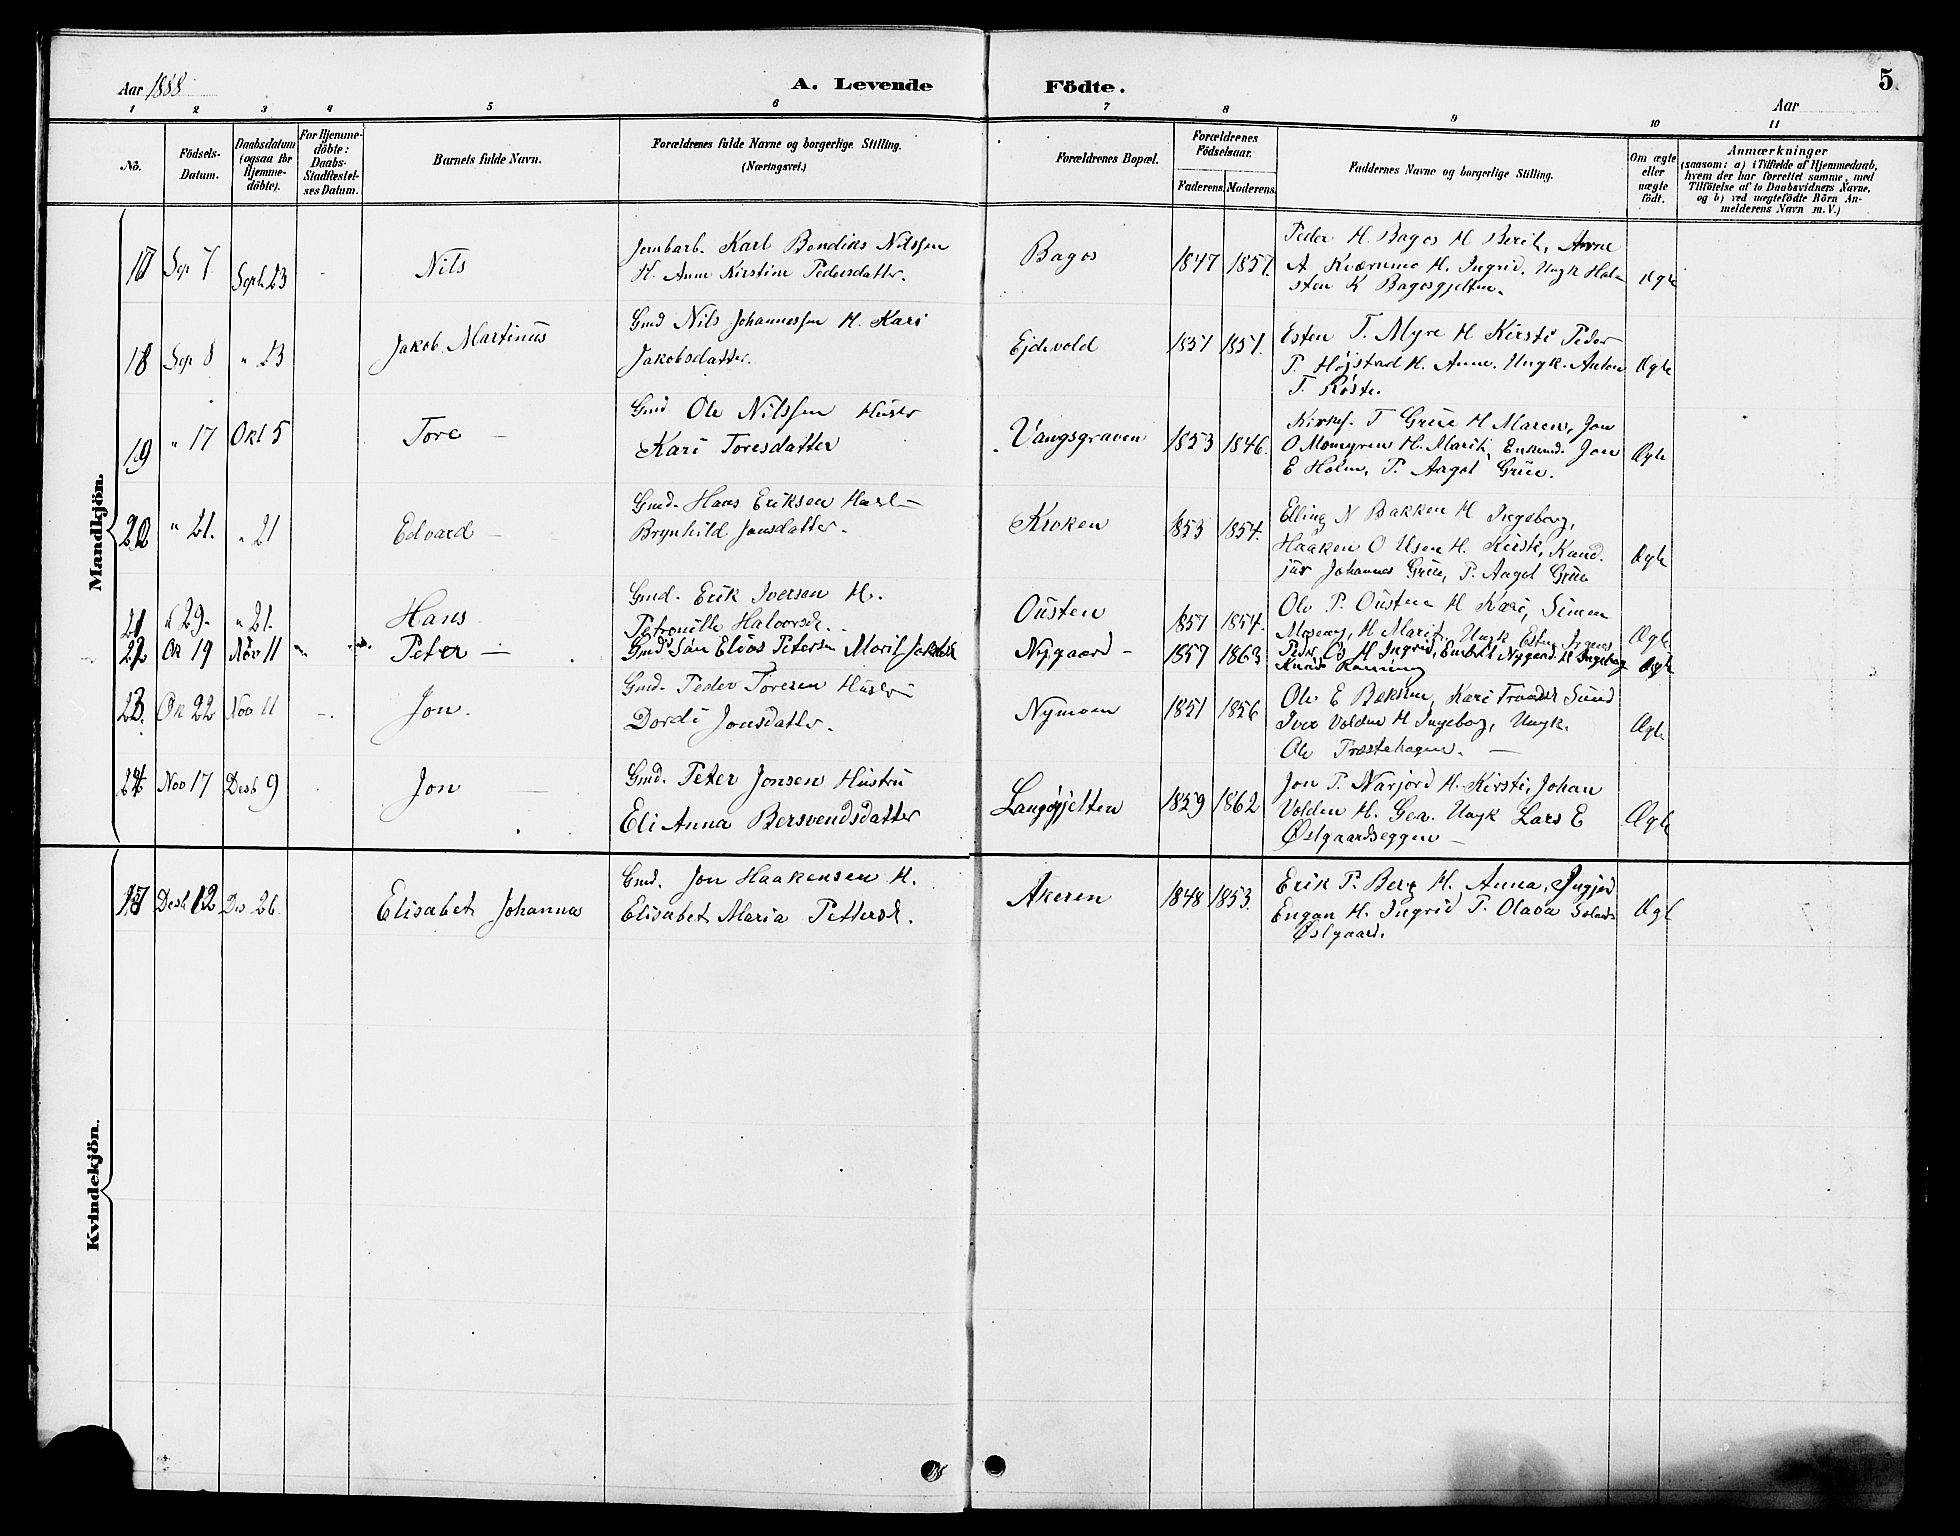 Aar 1888
A. Levende Födte.
5
Aar
1 2 3 4 5 6 7 8 9 10 11
No.
Födsels-Datum.
Daabsdatum (ogsaa for Hjemme-döbte).
For Hjemme-döbte: Daabs-Stadfæstel-ses Datum.
Barnets fulde Navn.
Forældrenes fulde Navne og borgerlige Stilling.
(Næringsvei.)
Forældrenes Bopæl.
Forældrenes Födselsaar.
Faderens. Moderens.
Faddernes Navne og borgerlige Stilling.
Om ægte eller uægte födt.
Anmærkninger
(saasom: a) i Tilfælde af Hjemmedaab,
hvem der har forrettet samme, med
Tilföielse af to Daabsvidners Navne,
og b) ved uægtefödte Börn An-
melderens Navn m. V.)
Mandkjön.
17 Sep 7 Sept. 23 Nils
Jernbarb. Karl Bendiks Nilssen
H. Anne Kirstine Pedersdatter.
Bagos 1847 1857.
Peder H. Bagos H Berit, Arne
A Kværnmo H. Ingrid. Ungk Hal-
sten K Bagosgjelten.
Ægte
18 Sep 8 " 23 Jakob Martinus
Gmd Nils Johannessen H. Kari
Jakobsdatter.
Ejdevold 1857 1857.
Esten T. Myre H Kirsti Peder
P. Højstad H. Anne. Ungk. Anton
T. Røste.
Ægte
19 " 17 Okt 5 Tore
Gmd Ole Nilssen Hustr
Kari Toresdatter
Vangsgraven 1853 1846.
T Grüe H Maren, Jon
O Momyren H. Marit, Enkemd. Jon
E Holm, P. Aagot Grüe.
Ægte
20 " 21. " 21 Edvard
Gmd. Hans Eriksen Hust
Brynhild Jonsdatter.
Kroken 1853 1854.
Elling N Bakken H Ingeborg,
Haaken O Usen H. Kirsti, Kand.
jur Johannes Grüe, P. Aagot Grüe
Ægte
21 " 29. " 21. Hans
Gmd. Erik Iversen H.
Petronille Halvorsd.
Ousten 1857 1854.
Ole P. Ousten H Kari, Simen
Moseng, H Marit, Ungk Esten
Ægte
22 Ok 19 Nov 11 Peter
Gmds Søn Elias Petersen Marit Jakobsd
Nygaard 1859 1863
Peder H Ingrid, Embret Nygaard H Ingeborg
Knut Rønning
Ægte
23. Ok 22 Nov 11 Jon.
Gmd. Peder Toresen Hustru
Dordi Jonsdatter.
Nymoen 1851 1856
Ole E Bakken, Kari Trondsd Sund
Iver Volden H Ingeborg, Ungk.
Ole Træstehagen.
Ægte
24 Nov 17 Desb 9 Jon
Gmd. Peter Jonsen Hustru
Eli Anna Bersvendsdatter
Langøgjelten 1859 1862
Jon P. Narjord H. Kirsti, Johan
Volden H. Gea. Ungk Lars E
Østgaardseggen
Ægte
Kvindekjön.
17 Desb 12 Des 26. Elisabet Johanna
Gmd. Jon Haakensen H.
Elisabet Maria Pettersd.
Akeren 1848 1853.
Erik P. Berg H. Anna, Ingjer
Engan H. Ingrid P. Olava
Østgaard.
Ægte